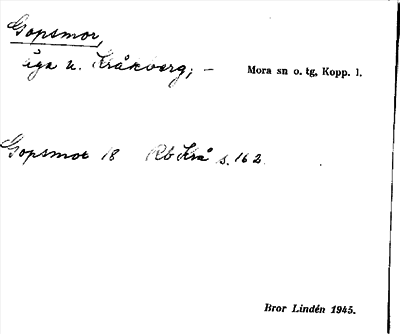 Gopsmor,
äga u. Kråkberg; – Mora sn o. tg, Kopp. l.
Gopsmor 18 Rb Krå s. 162
Bror Lindén 1945.